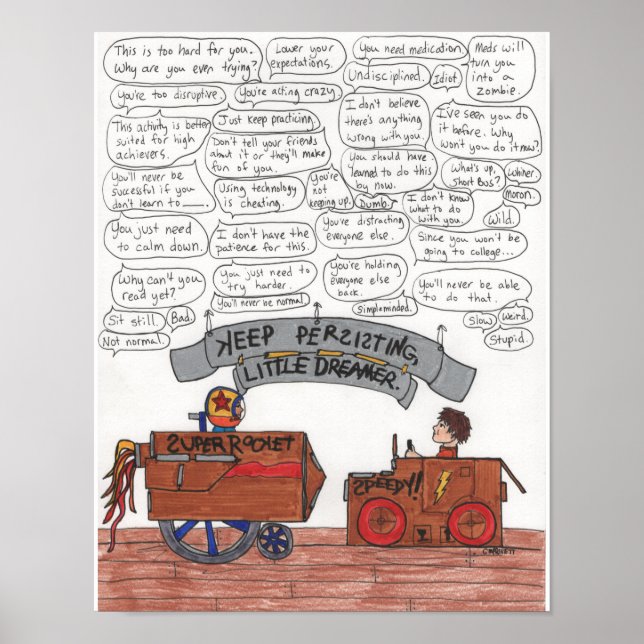 This is too hard for you.
Why are you even trying?
Lower your
expectations.
You need medication.
Meds will
turn you
into a
zombie.
Undisciplined.
Idiot.
You're too disruptive.
You're acting crazy.
I don't believe
there's anything
wrong with you.
I've seen you do
it before. Why
won't you do it now?
This activity is better
suited for high
achievers.
Just keep practicing.
Don't tell your friends
about it or they'll make
fun of you.
You should have
learned to do this
by now.
What's up,
Short Bus?
Whiner.
You'll never be
successful if you
don't learn to ____.
Using technology
is cheating.
You're
not
keeping up.
Dumb.
I don't know
what to do
with you.
Moron.
Wild.
You just need
to calm down.
I don't have the
patience for this.
You're distracting
everyone else.
Since you won't be
going to college...
Why can't you
read yet?
You just need to
try harder.
You're holding
everyone else
back.
You'll never be able
to do that.
You'll never be normal.
Simpleminded.
Sit still.
Bad.
Slow
Weird.
Not normal.
Stupid.
KEEP PERSISTING,
LITTLE DREAMER.
SUPER ROCKET
SPEEDY!